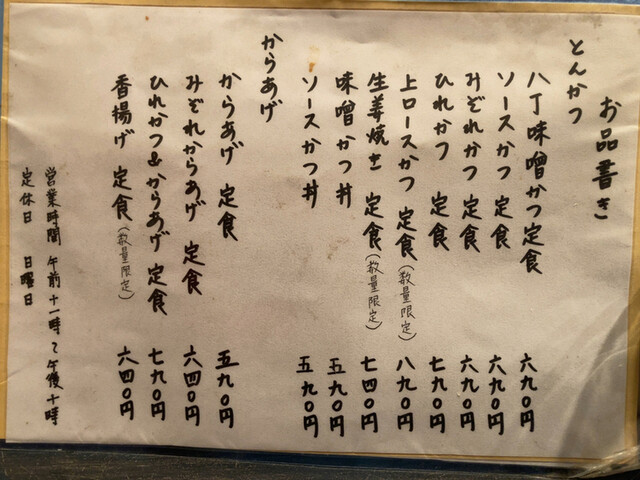 お品書き
とんかつ
八丁味噌かつ定食 六九〇円
ソースかつ 定食 六九〇円
みぞれかつ 定食 六九〇円
ひれかつ 定食 七九〇円
上ロースかつ 定食(数量限定) 八九〇円
生姜焼き 定食(数量限定) 七四〇円
味噌かつ丼 五九〇円
ソースかつ丼 五九〇円
からあげ
からあげ 定食 五九〇円
みぞれからあげ 定食 六四〇円
ひれかつ&からあげ 定食 七九〇円
香揚げ 定食(数量限定) 六四〇円
営業時間 午前十一時〜午後十時
定休日 日曜日